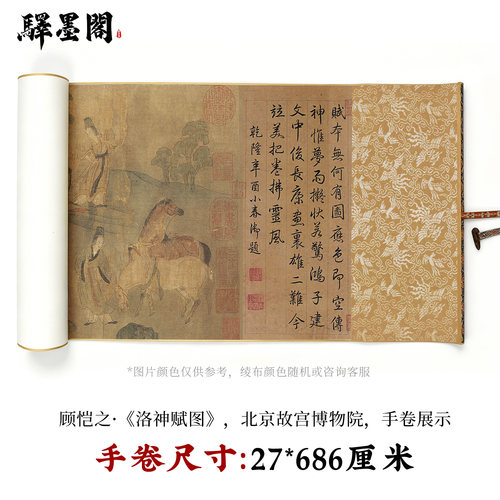 驛墨閣
賦本無何有圖應色即空傳
神惟夢雨擬狀若驚鴻子建
文中俊長康畫裏雄二難今
竝美把卷拂靈風
乾隆辛酉小春御題
*图片颜色仅供参考，绫布颜色随机或咨询客服
顾恺之·《洛神赋图》，北京故宫博物院，手卷展示
手卷尺寸:27*686厘米